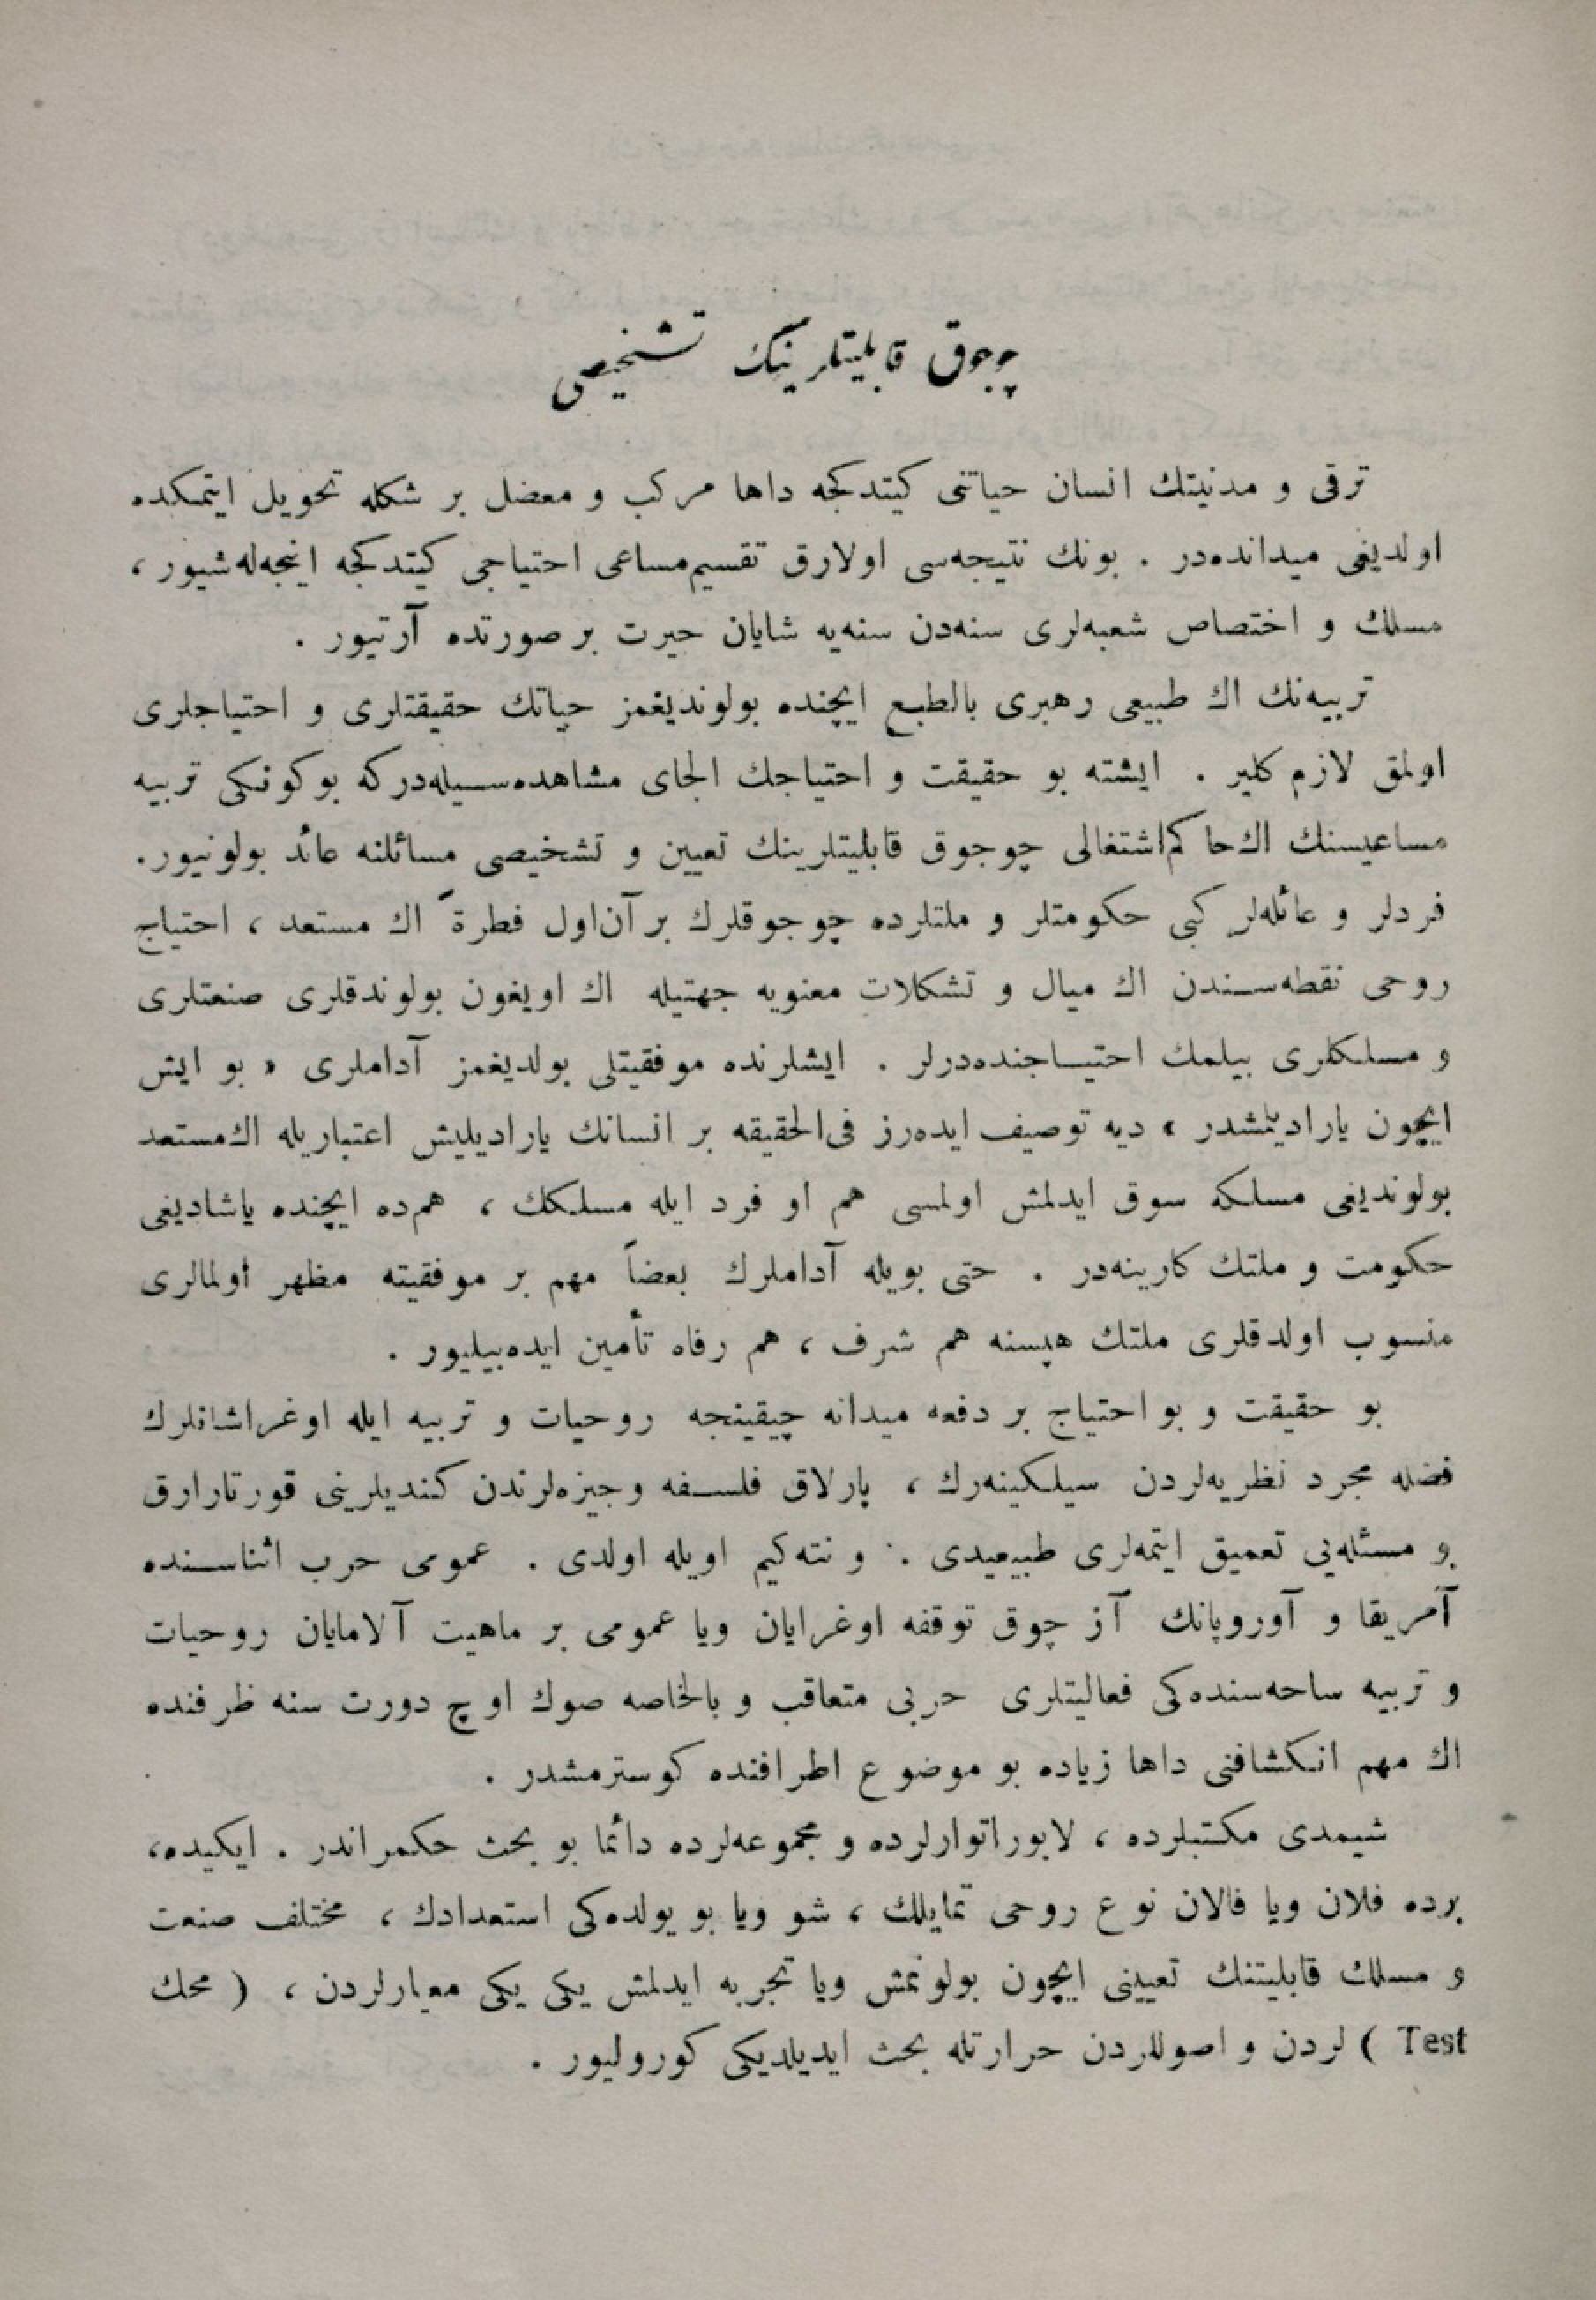 چوجوق قابليتلرينك تشخيصى
ترقى و مدنيتك انسان حياتنى كيتدكجه داها مركب و معضل بر شكله تحويل ايتمكده
اولديغى ميدانده‌در . بونك نتيجه‌سى اولارق تقسيم‌مساعى احتياجى كيتدكجه اينجه‌له‌شيور ،
مسلك و اختصاص شعبه‌لرى سنه‌دن سنه‌يه شايان حيرت بر صورتده آرتيور .
تربيه‌نك اك طبيعى رهبرى بالطبع ايچنده بولونديغمز حياتك حقيقتلرى و احتياجلرى
اولمق لازم كلير . ايشته بو حقيقت و احتياجك الجاى مشاهده‌سيله‌در كه بو كونكى تربيه
مساعيسنك اك حاكم اشتغالى چوجوق قابليتلرينك تعيين و تشخيصى مسائلنه عائد بولونيور.
فردلر و عائله‌لر كبى حكومتلر و ملتلرده چوجوقلرك بر آن اول فطرةً اك مستعد ، احتياج
روحى نقطه‌سندن اك ميال و تشكلات معنويه جهتيله اك اويغون بولوندقلرى صنعتلرى
و مسلكلرى بيلمك احتياجنده‌درلر . ايشلرنده موفقيتلى بولديغمز آداملرى « بو ايش
ايچون ياراديلمشدر » ديه توصيف ايده‌رز فى‌الحقيقه بر انسانك ياراديليش اعتباريله اك مستعد
بولونديغى مسلكه سوق ايدلمش اولمسى هم او فرد ايله مسلكك ، هم‌ده ايچنده ياشاديغى
حكومت و ملتك كارينه‌در . حتى بويله آداملرك بعضاً مهم بر موفقيته مظهر اولمالرى
منسوب اولدقلرى ملتك هپسنه هم شرف ، هم رفاه تأمين ايده‌بيليور .
بو حقيقت و بو احتياج بر دفعه ميدانه چيقينجه روحيات و تربيه ايله اوغراشانلرك
فضله مجرد نظريه‌لردن سيلكينه‌رك ، پارلاق فلسفه وجيزه‌لرندن كنديلرينى قورتارارق
بو مسئله‌يى تعميق ايتمه‌لرى طبيعيدى . و نته‌كيم اويله اولدى . عمومى حرب اثناسنده
آمريقا و آوروپانك آز چوق توقفه اوغرايان ويا عمومى بر ماهيت آلامايان روحيات
و تربيه ساحه‌سنده‌كى فعاليتلرى حربى متعاقب و بالخاصه صوك اوچ دورت سنه ظرفنده
اك مهم انكشافنى داها زياده بو موضوع اطرافنده كوسترمشدر .
شيمدى مكتبلرده ، لابوراتوارلرده و مجموعه‌لرده دائما بو بحث حكمراندر . ايكيده،
برده فلان ويا فالان نوع روحى تمايللك ، شو ويا بو يولده‌كى استعدادك ، مختلف صنعت
و مسلك قابليتنك تعيينى ايچون بولونمش ويا تجربه ايدلمش يكى يكى معيارلردن ، ( محك
Test ) لردن و اصوللردن حرارتله بحث ايديلديكى كوروليور .